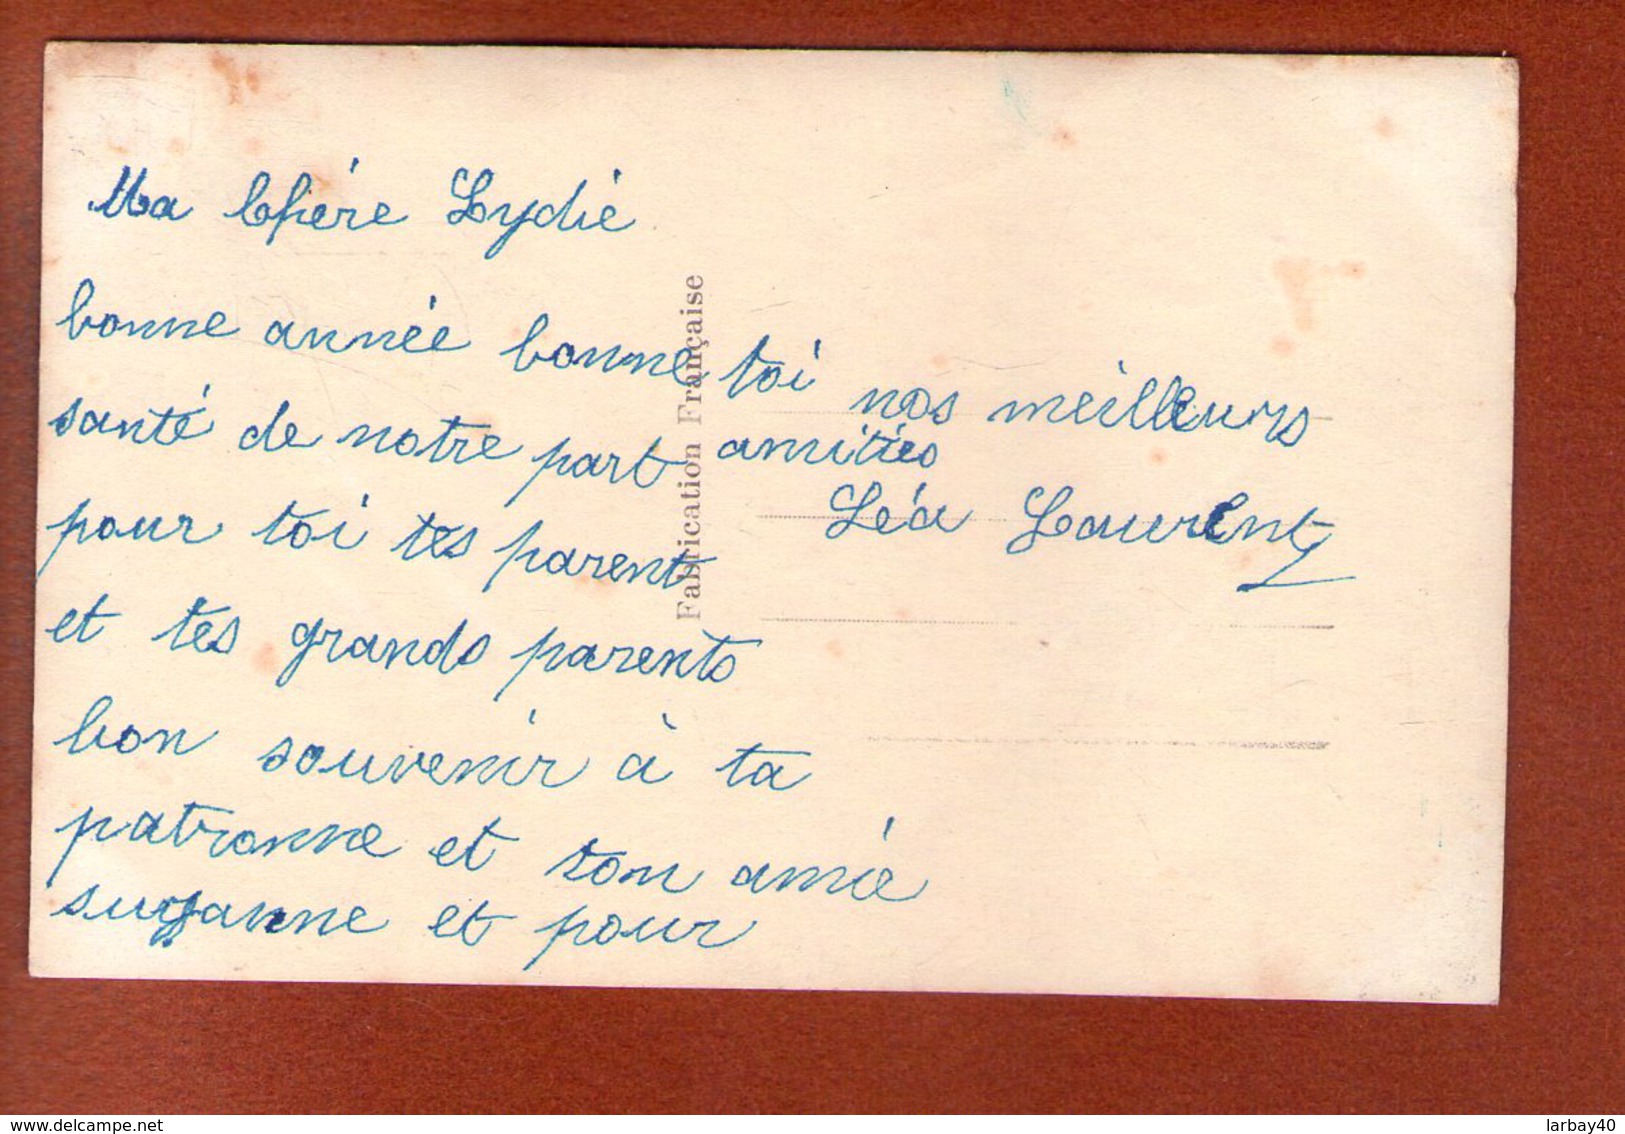 Ma Chére Lydie
bonne année bonne
santé de notre part
pour toi tes parent
et tes grands parents
bon souvenir à ta
patronne et ton amie
suzanne et pour
toi nos meilleurs
amitiés
Léa Laurent
Fabrication Française
delcampe.net
larbay40